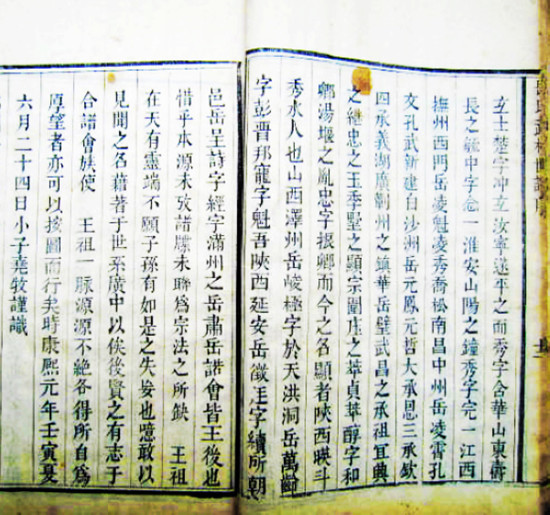 玄王楚字冲立汝寧遂平之而秀字含華山東壽
長之經中字念一淮安山陽之鐘秀字完一江西
撫州西門岳凌魁凌秀喬松南昌中州岳凌霄孔
文孔武新建白沙洲岳元鳳元哲大承恩三承欽
四承義湖廣蘄州之鎮華岳璧武昌之承祖宜興
之繼忠之玉季墅之顯宗圍庄之葉貞華醇字和
卿湯堰之亂忠字振卿而今之名顯者陝西暎斗
秀水人也山西澤州岳峻極字於天洪洞岳萬齡
字彭晋邦龍字魁吾陝西延安岳徵王字續所朝
邑岳呈詩字經字滿州之岳肅岳諮會皆王後也
惜乎本源未攷譜牒未聯爲宗法之所缺 王祖
在天有靈端不願子孫有如是之失妄也噫敢以
見聞之名藉著于世系廣中以俟後賢之有志于
合譜會族使 王祖一脉源源不絶各得所自爲
厚望者亦可以按圖而行矣時康熙元年壬寅夏
六月二十四日小子堯牧謹識